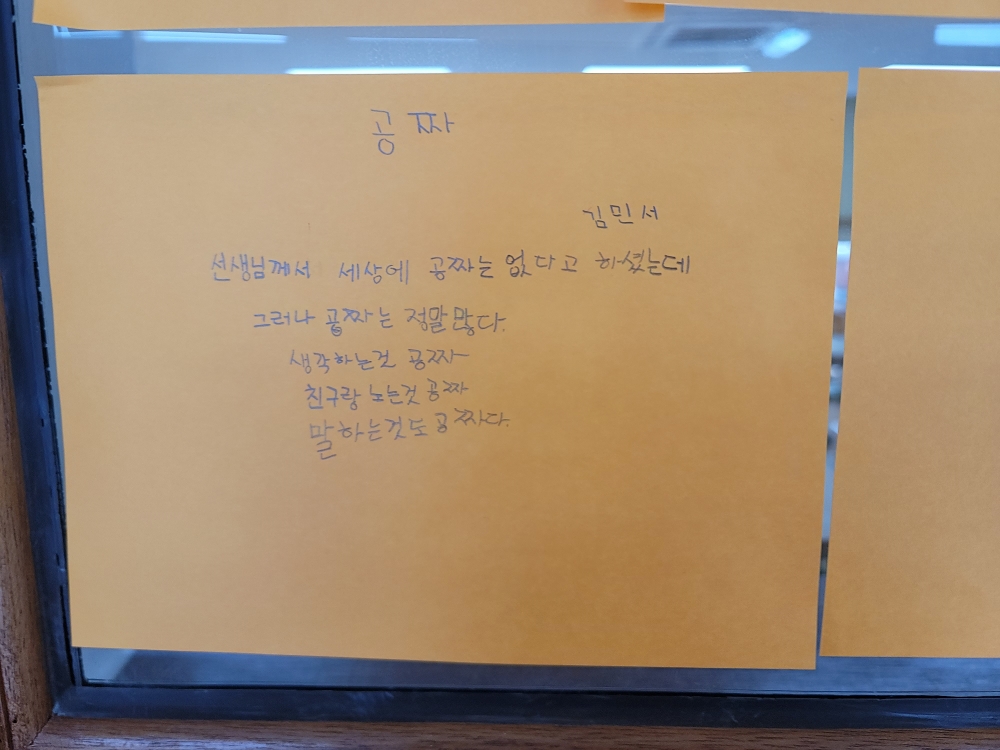 공짜
김민서
선생님께서 세상에 공짜는 없다고 하셨는데
그러나 공짜는 정말많다.
생각하는것 공짜
친구랑 노는것 공짜
말하는것도 공짜다.